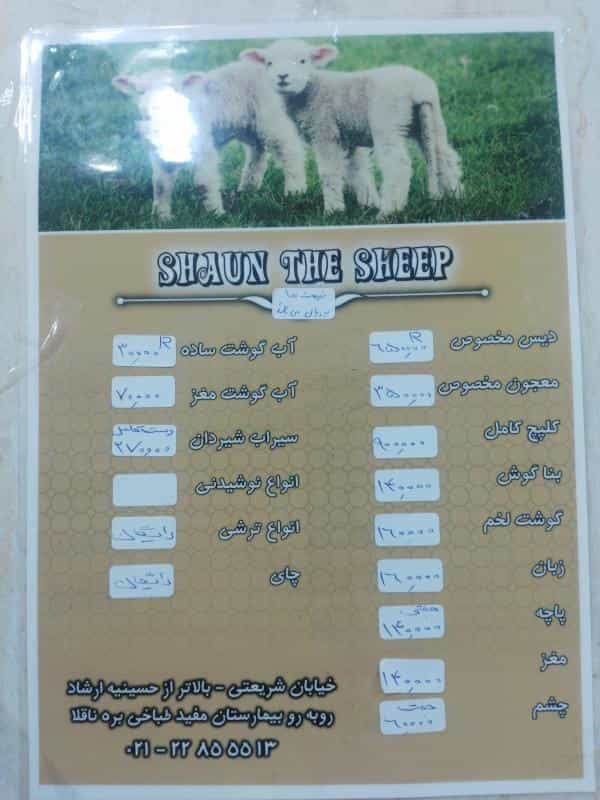 SHAUN THE SHEEP
قیمت ها
دیس مخصوص ۶۵۰٬۰۰۰ R
معجون مخصوص ۳۵۰٬۰۰۰
کلپچ کامل ۹۰۰٬۰۰۰
بنا گوش ۱۴۰٬۰۰۰
گوشت لخم ۱۶۰٬۰۰۰
زبان ۱۶۰٬۰۰۰
پاچه ۱۴۰٬۰۰۰
مغز ۱۴۰٬۰۰۰
چشم جفت ۶۰٬۰۰۰
آب گوشت ساده ۳۰٬۰۰۰ R
آب گوشت مغز ۷۰٬۰۰۰
سیراب شیردان دست کامل ۲۷۰٬۰۰۰
انواع نوشیدنی
انواع ترشی رایگان
چای رایگان
خیابان شریعتی - بالاتر از حسینیه ارشاد
روبه رو بیمارستان مفید طباخی بره ناقلا
۰۲۱ - ۲۲ ۸۵ ۵۵ ۱۳